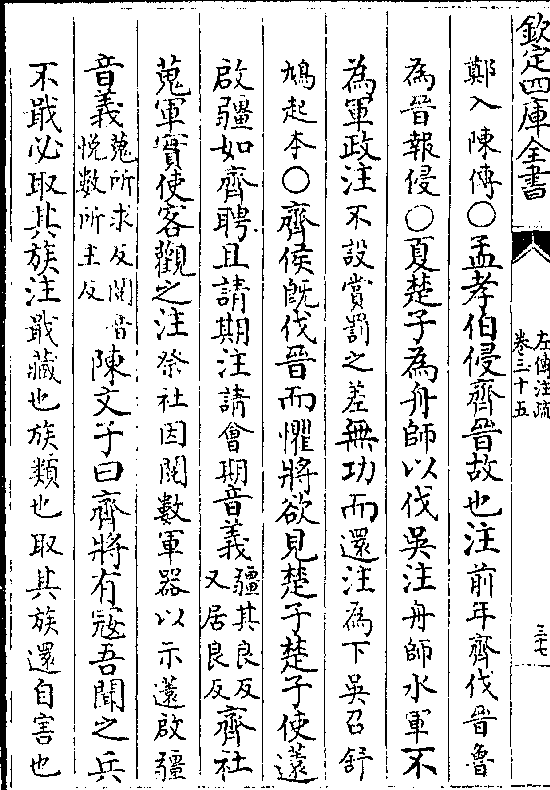 欽定四庫全書
左傳注疏
卷三十五
三七
鄭入陳傳○孟孝伯侵齊晉故也注前年齊伐晉魯
為晉報侵○夏楚子為舟師以伐吳注舟師水軍不
為軍政注不設賞罰之差無功而還注為下吳召舒
鳩起本○齊侯既伐晉而懼將欲見楚子楚子使薳
啟疆如齊聘且請期注請會期音義疆其良反又居良反齊社
蒐軍實使客觀之注祭社因閱數軍器以示薳啟疆
音義蒐所求反閱音悅數所主反陳文子曰齊將有寇吾聞之兵
不戢必取其族注戢藏也族類也取其族還自害也